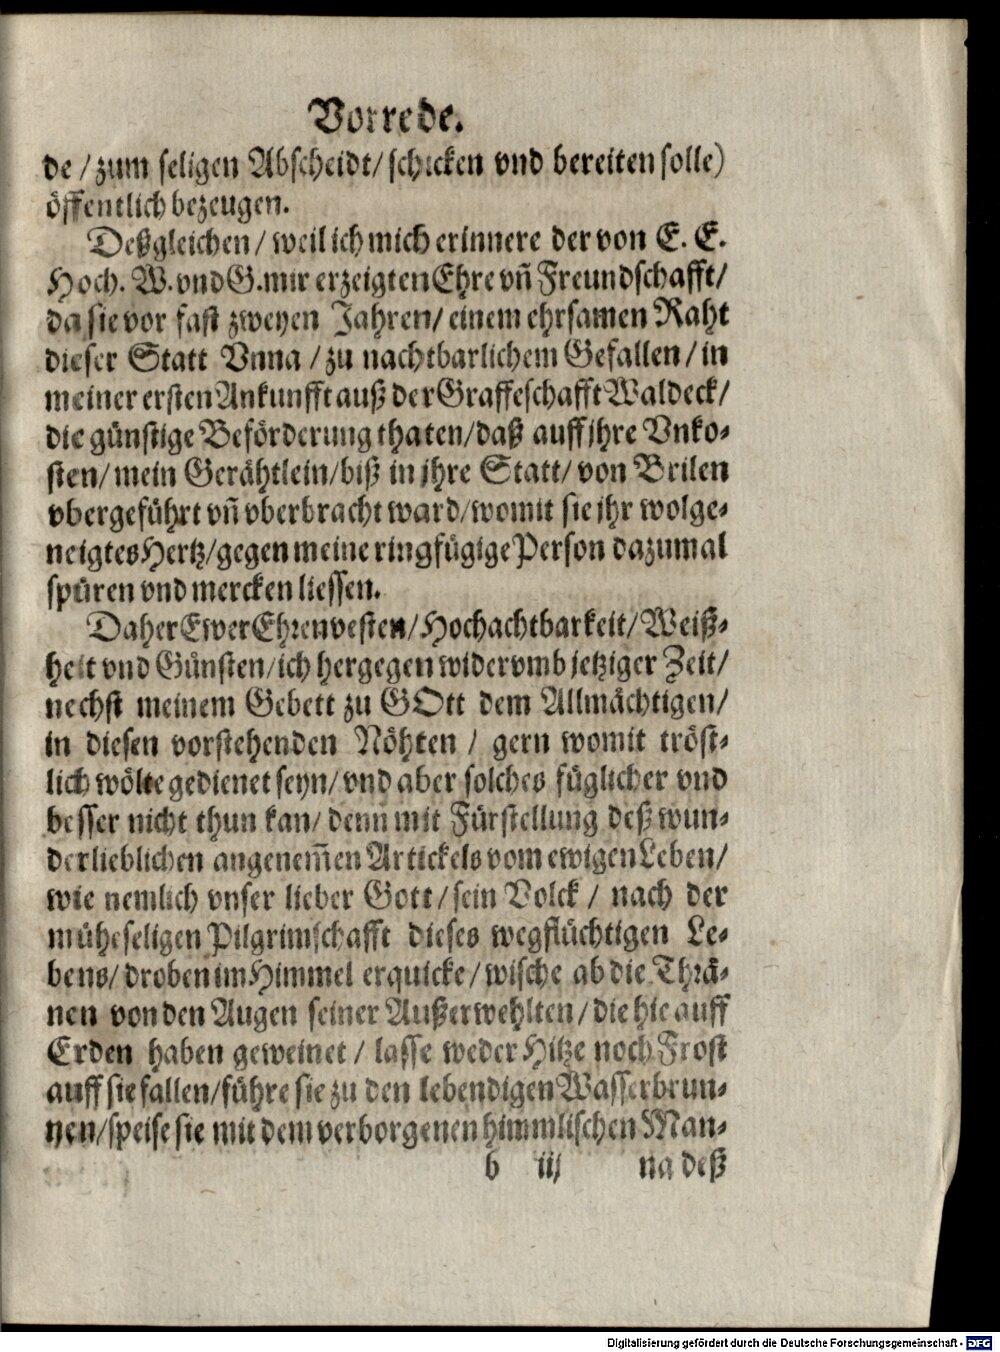 Vorrede.
de / zum seligen Abscheidt / schicken vnd bereiten solle)
öffentlich bezeugen.
Deßgleichen / weil ich mich erinnere der von E. E.
Hoch. W. vnd G. mir erzeigten Ehre vñ Freundschafft /
da sie vor fast zweyen Jahren / einem ehrsamen Raht
dieser Statt Vnna / zu nachtbarlichem Gefallen / in
meiner ersten Ankunfft auß der Graffeschafft Waldeck /
die günstige Beförderung thaten / daß auff jhre Vnko-
sten / mein Gerähtlein / biß in jhre Statt / von Brilen
vbergeführt vñ vberbracht ward / womit sie jhr wolge-
neigtes Hertz / gegen meine ringfügige Person dazumal
spüren vnd mercken liessen.
Daher Ewer Ehrenvesten / Hochachtbarkeit / Weiß-
heit vnd Günsten / ich hergegen wider vmb jetziger Zeit /
nechst meinem Gebett zu GOtt dem Allmächtigen /
in diesen vorstehenden Nöhten / gern womit tröst-
lich wölte gedienet seyn / vnd aber solches füglicher vnd
besser nicht thun kan / denn mit Fürstellung deß wun-
derlieblichen angenem̃en Artickels vom ewigen Leben /
wie nemlich vnser lieber Gott / sein Volck / nach der
müheseligen Pilgrimschafft dieses wegflüchtigen Le-
bens / droben im Himmel erquicke / wische ab die Thrä-
nen von den Augen seiner Außerwehlten / die hie auff
Erden haben geweinet / lasse weder Hitze noch Frost
auff sie fallen / führe sie zu den lebendigen Wasserbrun-
nen / speise sie mit dem verborgenen himmlischen Man-
b iij na deß
Digitalisierung gefördert durch die Deutsche Forschungsgemeinschaft - DFG